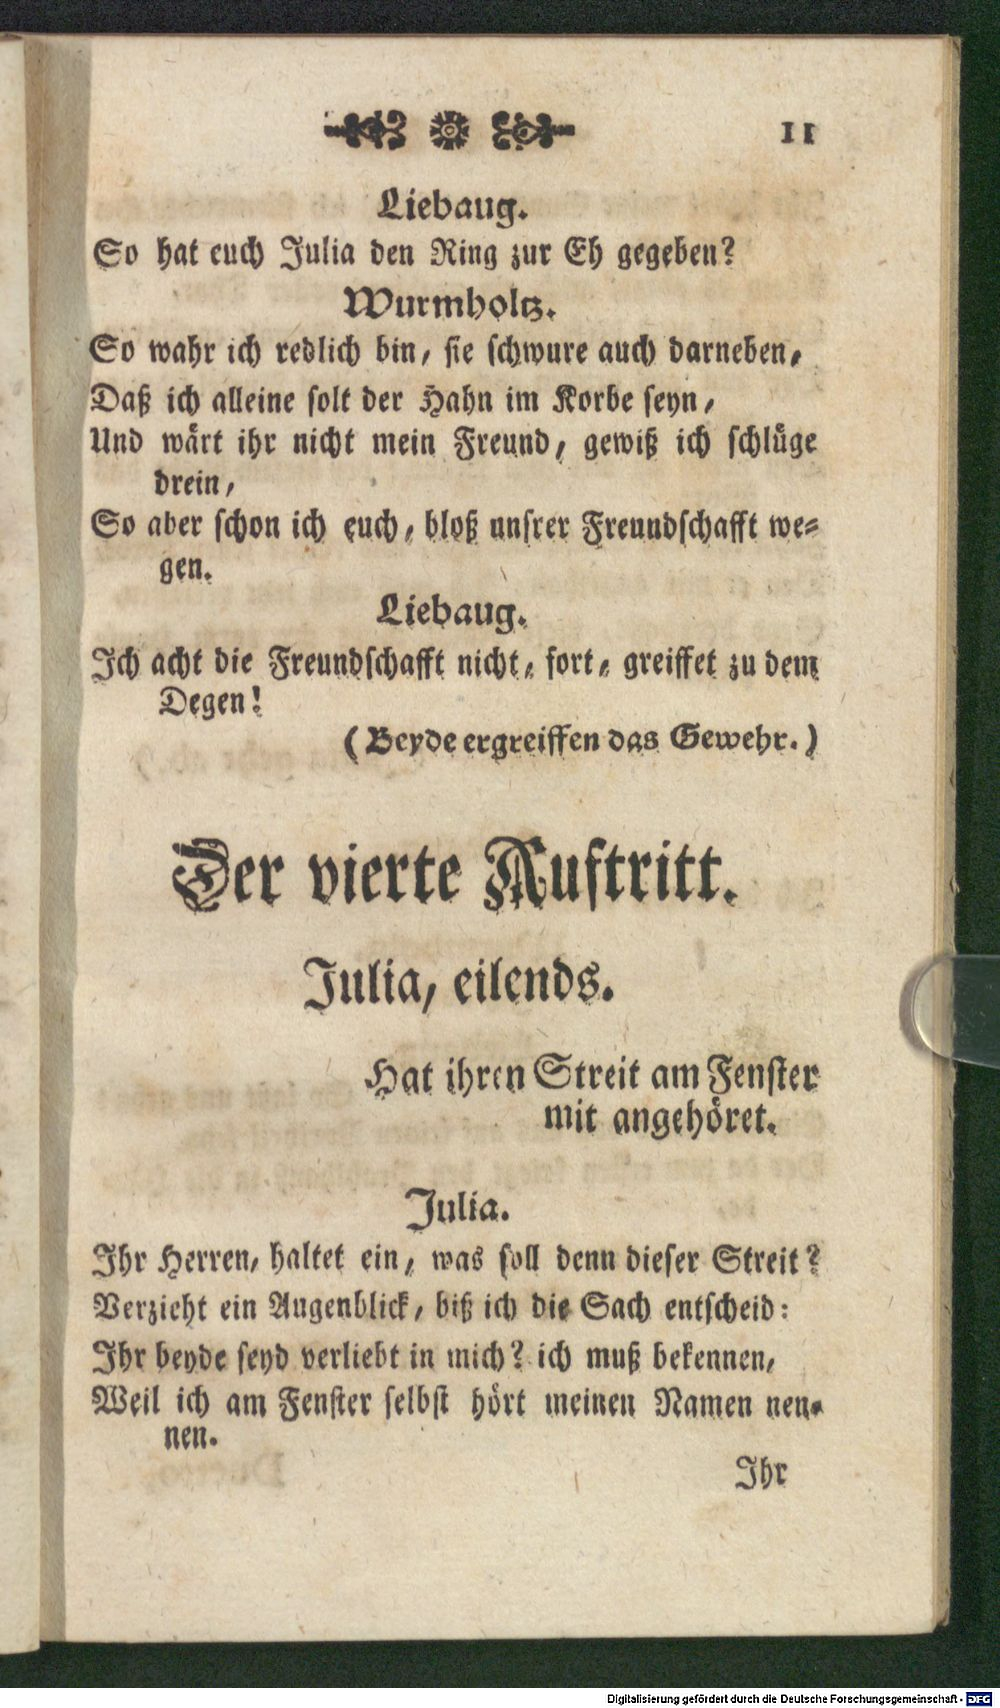 11
Liebaug.
So hat euch Julia den Ring zur Eh gegeben?
Wurmholtz.
So wahr ich redlich bin, sie schwure auch darneben,
Daß ich alleine solt der Hahn im Korbe seyn,
Und wärt ihr nicht mein Freund, gewiß ich schlüge
drein,
So aber schon ich euch, bloß unsrer Freundschafft we-
gen.
Liebaug.
Ich acht die Freundschafft nicht, fort, greiffet zu dem
Degen!
(Beyde ergreiffen das Gewehr.)
Der vierte Auftritt.
Julia, eilends.
Hat ihren Streit am Fenster
mit angehöret.
Julia.
Ihr Herren, haltet ein, was soll denn dieser Streit?
Verzieht ein Augenblick, biß ich die Sach entscheid:
Ihr beyde seyd verliebt in mich? ich muß bekennen,
Weil ich am Fenster selbst hört meinen Namen nen-
nen.
Ihr
Digitalisierung gefördert durch die Deutsche Forschungsgemeinschaft - DFG